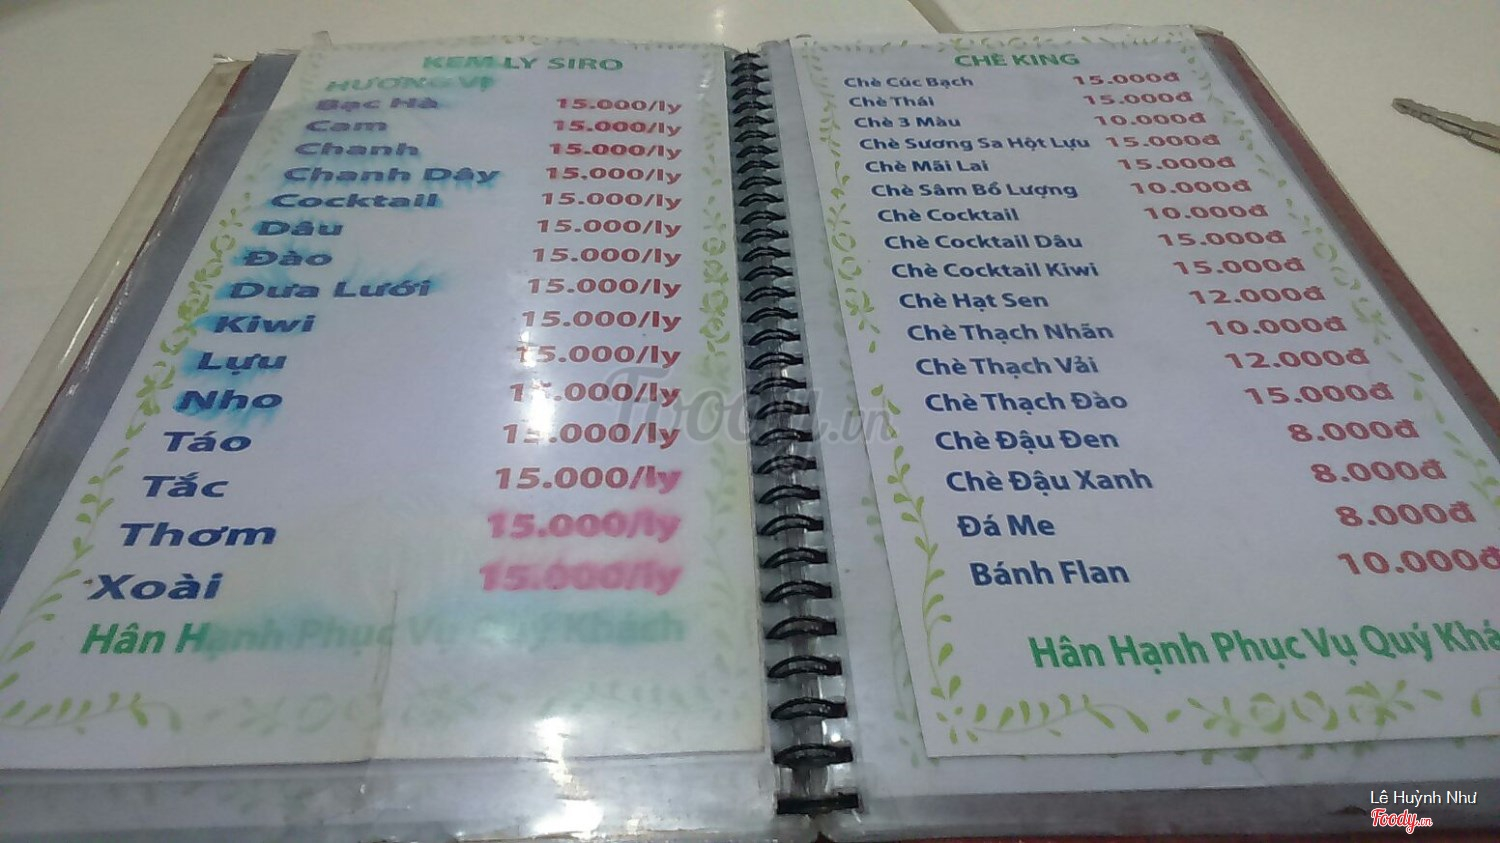 KEM LY SIRO
HƯƠNG VỊ
Bạc Hà 15.000/ly
Cam 15.000/ly
Chanh 15.000/ly
Chanh Dây 15.000/ly
Cocktail 15.000/ly
Dâu 15.000/ly
Đào 15.000/ly
Dưa Lưới 15.000/ly
Kiwi 15.000/ly
Lựu 15.000/ly
Nho 15.000/ly
Táo 15.000/ly
Tắc 15.000/ly
Thơm 15.000/ly
Xoài 15.000/ly
Hân Hạnh Phục Vụ Quý Khách
CHÈ KING
Chè Cúc Bạch 15.000đ
Chè Thái 15.000đ
Chè 3 Màu 10.000đ
Chè Sương Sa Hột Lựu 15.000đ
Chè Mãi Lai 15.000đ
Chè Sâm Bổ Lượng 10.000đ
Chè Cocktail 10.000đ
Chè Cocktail Dâu 15.000đ
Chè Cocktail Kiwi 15.000đ
Chè Hạt Sen 12.000đ
Chè Thạch Nhãn 10.000đ
Chè Thạch Vải 12.000đ
Chè Thạch Đào 15.000đ
Chè Đậu Đen 8.000đ
Chè Đậu Xanh 8.000đ
Đá Me 8.000đ
Bánh Flan 10.000đ
Hân Hạnh Phục Vụ Quý Khá
Foody.vn
Lê Huỳnh Như
Foody.vn